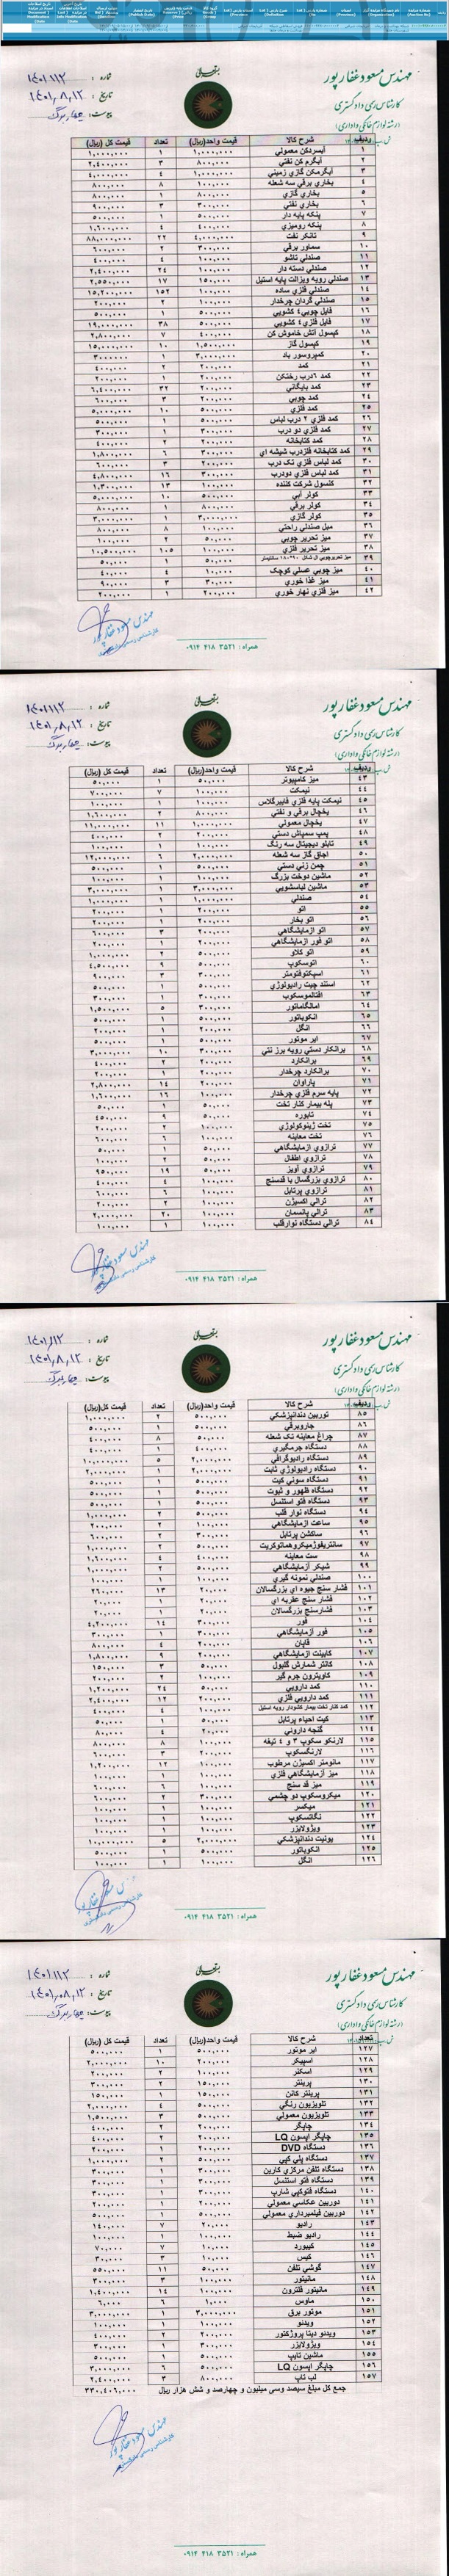 مهندس مسعود غفارپور
کارشناس رسمی دادگستری
(رشته لوازم خانگی و اداری)
شماره : ۱۴۰۱۱۱۲
تاریخ : ۱۴۰۱٫۸٫۱۲
پیوست: چهار برگ
ردیف شرح کالا قیمت واحد(ریال) تعداد قیمت کل (ریال)
۱ آبسردکن معمولی ۱,۰۰۰,۰۰۰ ۱ ۱,۰۰۰,۰۰۰
۲ آبگرم کن نفتی ۸۰۰,۰۰۰ ۳ ۲,۴۰۰,۰۰۰
۳ آبگرمکن گازی زمینی ۱,۰۰۰,۰۰۰ ۴ ۴,۰۰۰,۰۰۰
۴ بخاری برقی سه شعله ۱۰۰,۰۰۰ ۸ ۸۰۰,۰۰۰
۵ بخاری گازی ۸۰۰,۰۰۰ ۱ ۸۰۰,۰۰۰
۶ بخاری نفتی ۳۰۰,۰۰۰ ۳ ۹۰۰,۰۰۰
۷ پنکه پایه دار ۵۰۰,۰۰۰ ۱ ۵۰۰,۰۰۰
۸ پنکه رومیزی ۴۰۰,۰۰۰ ۴ ۱,۶۰۰,۰۰۰
۹ تانکر نفت ۴,۰۰۰,۰۰۰ ۲۲ ۸۸,۰۰۰,۰۰۰
۱۰ سماور برقی ۳۰۰,۰۰۰ ۲ ۶۰۰,۰۰۰
۱۱ صندلی تاشو ۱۰۰,۰۰۰ ۴ ۴۰۰,۰۰۰
۱۲ صندلی دسته دار ۱۰۰,۰۰۰ ۲۴ ۲,۴۰۰,۰۰۰
۱۳ صندلی رویه ویزالت پایه استیل ۱۵۰,۰۰۰ ۱۷ ۲,۵۵۰,۰۰۰
۱۴ صندلی فلزی ساده ۱۰۰,۰۰۰ ۱۵۲ ۱۵,۲۰۰,۰۰۰
۱۵ صندلی گردان چرخدار ۱۰۰,۰۰۰ ۲ ۲۰۰,۰۰۰
۱۶ فایل چوبی ۴ کشویی ۵۰۰,۰۰۰ ۱ ۵۰۰,۰۰۰
۱۷ فایل فلزی ۴ کشویی ۵۰۰,۰۰۰ ۳۸ ۱۹,۰۰۰,۰۰۰
۱۸ کپسول آتش خاموش کن ۴۰۰,۰۰۰ ۷ ۲,۸۰۰,۰۰۰
۱۹ کپسول گاز ۱,۵۰۰,۰۰۰ ۱۰ ۱۵,۰۰۰,۰۰۰
۲۰ کمپروسور باد ۳,۰۰۰,۰۰۰ ۱ ۳۰۰۰,۰۰۰
۲۱ کمد ۲۰۰,۰۰۰ ۲ ۴۰۰,۰۰۰
۲۲ کمد ۶درب رختکن ۲۰۰,۰۰۰ ۱ ۲۰۰,۰۰۰
۲۳ کمد بایگانی ۲۰۰,۰۰۰ ۳۲ ۶,۴۰۰,۰۰۰
۲۴ کمد چوبی ۲۰۰,۰۰۰ ۳ ۶۰۰,۰۰۰
۲۵ کمد فلزی ۵۰۰,۰۰۰ ۱۰ ۵,۰۰۰,۰۰۰
۲۶ کمد فلزی ۲ درب لباس ۵۰۰,۰۰۰ ۱ ۵۰۰,۰۰۰
۲۷ کمد فلزی دو درب ۳۰۰,۰۰۰ ۱ ۳۰۰,۰۰۰
۲۸ کمد کتابخانه ۲۰۰,۰۰۰ ۲ ۴۰۰,۰۰۰
۲۹ کمد کتابخانه فلزدرب شیشه ای ۳۰۰,۰۰۰ ۶ ۱,۸۰۰,۰۰۰
۳۰ کمد لباس فلزی تک درب ۲۰۰,۰۰۰ ۳ ۶۰۰,۰۰۰
۳۱ کمد لباس فلزی دودرب ۳۰۰,۰۰۰ ۱۶ ۴,۸۰۰,۰۰۰
۳۲ کنسول شرکت کننده ۱۰۰,۰۰۰ ۱۳ ۱,۳۰۰,۰۰۰
۳۳ کولر آبی ۵۰۰,۰۰۰ ۱۰ ۵,۰۰۰,۰۰۰
۳۴ کولر برقی ۸۰۰,۰۰۰ ۱ ۸۰۰,۰۰۰
۳۵ کولر گازی ۳,۰۰۰,۰۰۰ ۱ ۳,۰۰۰,۰۰۰
۳۶ مبل صندلی راحتی ۱۰۰,۰۰۰ ۸ ۸۰۰,۰۰۰
۳۷ میز تحریر چوبی ۵۰,۰۰۰ ۲ ۱۰۰,۰۰۰
۳۸ میز تحریر فلزی ۱۰۰,۰۰۰ ۱۰۵ ۱۰,۵۰۰,۰۰۰
۳۹ میز تحریرچوبی ال شکل ۹۰*۱۸۰ سانتیمتر ۵۰,۰۰۰ ۱ ۵۰,۰۰۰
۴۰ میز چوبی عسلی کوچک ۱۰,۰۰۰ ۴ ۴۰,۰۰۰
۴۱ میز غذا خوری ۳۰,۰۰۰ ۳ ۹۰,۰۰۰
۴۲ میز فلزی نهار خوری ۲۰۰,۰۰۰ ۱ ۲۰۰,۰۰۰
مهندس مسعود غفارپور
همراه : ۳۵۲۱ ۴۱۸ ۰۹۱۴
مهندس مسعود غفارپور
کارشناس رسمی دادگستری
(رشته لوازم خانگی و اداری)
شماره : ۱۴۰۱۱۱۲
تاریخ : ۱۴۰۱٫۸٫۱۲
پیوست: چهار برگ
ردیف شرح کالا قیمت واحد(ریال) تعداد قیمت کل (ریال)
۴۳ میز کامپیوتر ۵۰,۰۰۰ ۱ ۵۰,۰۰۰
۴۴ نیمکت ۱۰۰,۰۰۰ ۷ ۷۰۰,۰۰۰
۴۵ نیمکت پایه فلزی فایبرگلاس ۱۰۰,۰۰۰ ۱ ۱۰۰,۰۰۰
۴۶ یخچال برقی و نفتی ۸۰۰,۰۰۰ ۲ ۱,۶۰۰,۰۰۰
۴۷ یخچال معمولی ۱,۰۰۰,۰۰۰ ۱۱ ۱۱,۰۰۰,۰۰۰
۴۸ پمپ سمپاش دستی ۲۰۰,۰۰۰ ۲ ۴۰۰,۰۰۰
۴۹ تابلو دیجیتال سه رنگ ۱۰۰,۰۰۰ ۱ ۱۰۰,۰۰۰
۵۰ اجاق گاز سه شعله ۲,۰۰۰,۰۰۰ ۶ ۱۲,۰۰۰,۰۰۰
۵۱ چمن زنی دستی ۵۰۰,۰۰۰ ۱ ۵۰۰,۰۰۰
۵۲ ماشین دوخت بزرگ ۱۰۰,۰۰۰ ۱ ۱۰۰,۰۰۰
۵۳ ماشین لباسشویی ۳,۰۰۰,۰۰۰ ۱ ۳,۰۰۰,۰۰۰
۵۴ صندلی ۱,۰۰۰,۰۰۰ ۱ ۱,۰۰۰,۰۰۰
۵۵ اتو ۲۰۰,۰۰۰ ۱ ۲۰۰,۰۰۰
۵۶ اتو بخار ۲۰۰,۰۰۰ ۱ ۲۰۰,۰۰۰
۵۷ اتو ازمایشگاهی ۲۰۰,۰۰۰ ۳ ۶۰۰,۰۰۰
۵۸ اتو فور ازمایشگاهی ۲۰۰,۰۰۰ ۱ ۲۰۰,۰۰۰
۵۹ اتو کلاو ۵۰۰,۰۰۰ ۲ ۱,۰۰۰,۰۰۰
۶۰ اتوسکوپ ۵۰۰,۰۰۰ ۹ ۴,۵۰۰,۰۰۰
۶۱ اسپکتوفتومتر ۳۰۰,۰۰۰ ۳ ۹۰۰,۰۰۰
۶۲ استند چیت رادیولوژی ۵۰۰,۰۰۰ ۱ ۵۰۰,۰۰۰
۶۳ افتالموسکوپ ۳۰۰,۰۰۰ ۱ ۳۰۰,۰۰۰
۶۴ امالگاماتور ۳۰۰,۰۰۰ ۵ ۱,۵۰۰,۰۰۰
۶۵ انکوباتور ۵۰۰,۰۰۰ ۱ ۵۰۰,۰۰۰
۶۶ انگل ۲۰۰,۰۰۰ ۱ ۲۰۰,۰۰۰
۶۷ ایر موتور ۵۰۰,۰۰۰ ۱ ۵۰۰,۰۰۰
۶۸ برانکار دستی رویه برزنتی ۳۰۰,۰۰۰ ۱۰ ۳,۰۰۰,۰۰۰
۶۹ برانکارد ۲۰۰,۰۰۰ ۲ ۴۰۰,۰۰۰
۷۰ برانکارد چرخدار ۲۰۰,۰۰۰ ۱ ۲۰۰,۰۰۰
۷۱ پاراوان ۲۰۰,۰۰۰ ۱۴ ۲,۸۰۰,۰۰۰
۷۲ پایه سرم فلزی چرخدار ۱۰۰,۰۰۰ ۱۶ ۱,۶۰۰,۰۰۰
۷۳ پله بیمار کنار تخت ۵۰,۰۰۰ ۱ ۵۰,۰۰۰
۷۴ تابوره ۵۰,۰۰۰ ۹ ۴۵۰,۰۰۰
۷۵ تخت ژینوکولوژی ۱۰۰,۰۰۰ ۲ ۲۰۰,۰۰۰
۷۶ تخت معاینه ۱۰۰,۰۰۰ ۶ ۶۰۰,۰۰۰
۷۷ ترازوی ازمایشگاهی ۵۰,۰۰۰ ۱ ۵۰,۰۰۰
۷۸ ترازوی اطفال ۵۰,۰۰۰ ۲ ۱۰۰,۰۰۰
۷۹ ترازوی آویز ۵۰,۰۰۰ ۱۹ ۹۵۰,۰۰۰
۸۰ ترازوی بزرگسال با قدسنج ۱۰۰,۰۰۰ ۴ ۴۰۰,۰۰۰
۸۱ ترازوی پرتابل ۱۰۰,۰۰۰ ۶ ۶۰۰,۰۰۰
۸۲ ترالی اکسیژن ۱۰۰,۰۰۰ ۲ ۲۰۰,۰۰۰
۸۳ ترالی پانسمان ۱۰۰,۰۰۰ ۲۰ ۲,۰۰۰,۰۰۰
۸۴ ترالی دستگاه نوارقلب ۱۰۰,۰۰۰ ۱ ۱۰۰,۰۰۰
مهندس مسعود غفارپور
همراه : ۳۵۲۱ ۴۱۸ ۰۹۱۴
مهندس مسعود غفارپور
کارشناس رسمی دادگستری
(رشته لوازم خانگی و اداری)
شماره : ۱۴۰۱٫۱۱۲
تاریخ : ۱۴۰۱٫۸٫۱۲
پیوست: چهار برگ
ردیف شرح کالا قیمت واحد(ریال) تعداد قیمت کل(ریال)
۸۵ توربین دندانپزشکی ۵۰۰,۰۰۰ ۲ ۱,۰۰۰,۰۰۰
۸۶ جاروبرقی ۵۰۰,۰۰۰ ۱ ۵۰۰,۰۰۰
۸۷ چراغ معاینه تک شعله ۵۰,۰۰۰ ۸ ۴۰۰,۰۰۰
۸۸ دستگاه جرمگیری ۴۰۰,۰۰۰ ۱ ۴۰۰,۰۰۰
۸۹ دستگاه رادیوگرافی ۲,۰۰۰,۰۰۰ ۵ ۱۰,۰۰۰,۰۰۰
۹۰ دستگاه رادیولوژی ثابت ۲,۰۰۰,۰۰۰ ۱ ۲,۰۰۰,۰۰۰
۹۱ دستگاه سونی کیت ۵۰۰,۰۰۰ ۱ ۵۰۰,۰۰۰
۹۲ دستگاه ظهور و ثبوت ۵۰۰,۰۰۰ ۱ ۵۰۰,۰۰۰
۹۳ دستگاه فتو استنسل ۵۰۰,۰۰۰ ۱ ۵۰۰,۰۰۰
۹۴ دستگاه نوار قلب ۵۰۰,۰۰۰ ۲ ۱,۰۰۰,۰۰۰
۹۵ ساعت ازمایشگاهی ۱۰۰,۰۰۰ ۲ ۲۰۰,۰۰۰
۹۶ ساکشن پرتابل ۳۰۰,۰۰۰ ۲ ۶۰۰,۰۰۰
۹۷ سانتریفوژمیکروهماتوکریت ۵۰۰,۰۰۰ ۲ ۱,۰۰۰,۰۰۰
۹۸ ست معاینه ۴۰۰,۰۰۰ ۴ ۱,۶۰۰,۰۰۰
۹۹ شیکر آزمایشگاهی ۵۰۰,۰۰۰ ۲ ۱,۰۰۰,۰۰۰
۱۰۰ صندلی نمونه گیری ۱۰۰,۰۰۰ ۱ ۱۰۰,۰۰۰
۱۰۱ فشار سنج جیوه ای بزرگسالان ۲۰,۰۰۰ ۱۳ ۲۶۰,۰۰۰
۱۰۲ فشار سنج عقربه ای ۲۰,۰۰۰ ۱ ۲۰,۰۰۰
۱۰۳ فشارسنج بزرگسالان ۲۰,۰۰۰ ۱ ۲۰,۰۰۰
۱۰۴ فور ۳۰۰,۰۰۰ ۱۴ ۴,۲۰۰,۰۰۰
۱۰۵ فور آزمایشگاهی ۳۰۰,۰۰۰ ۱ ۳۰۰,۰۰۰
۱۰۶ قاپان ۲۰۰,۰۰۰ ۴ ۸۰۰,۰۰۰
۱۰۷ کابینت ازمایشگاهی ۲۰۰,۰۰۰ ۹ ۱,۸۰۰,۰۰۰
۱۰۸ کانتر شمارش گلبول ۵۰,۰۰۰ ۳ ۱۵۰,۰۰۰
۱۰۹ کاویترون جرم گیر ۱۰۰,۰۰۰ ۲ ۲۰۰,۰۰۰
۱۱۰ کمد دارویی ۵۰,۰۰۰ ۲۴ ۱,۲۰۰,۰۰۰
۱۱۱ کمد دارویی فلزی ۲۰۰,۰۰۰ ۱۲ ۲,۴۰۰,۰۰۰
۱۱۲ کمد کنار تخت بیمار کشودار رویه استیل ۱۰۰,۰۰۰ ۴ ۴۰۰,۰۰۰
۱۱۳ کیت احیاء پرتابل ۵۰,۰۰۰ ۱ ۵۰,۰۰۰
۱۱۴ گنجه داروئی ۲۰۰,۰۰۰ ۴ ۸۰۰,۰۰۰
۱۱۵ لارنکو سکوپ ۳ و ۴ تیغه ۱۰۰,۰۰۰ ۸ ۸۰۰,۰۰۰
۱۱۶ لارنگسکوپ ۲۰۰,۰۰۰ ۳ ۶۰۰,۰۰۰
۱۱۷ مانومتر اکسیژن مرطوب ۱۰۰,۰۰۰ ۱۲ ۱,۲۰۰,۰۰۰
۱۱۸ میز ازمایشگاهی فلزی ۱۰۰,۰۰۰ ۱ ۱۰۰,۰۰۰
۱۱۹ میز قد سنج ۱۰۰,۰۰۰ ۶ ۶۰۰,۰۰۰
۱۲۰ میکروسکوپ دو چشمی ۳۰۰,۰۰۰ ۲ ۶۰۰,۰۰۰
۱۲۱ میکسر ۱۰۰,۰۰۰ ۱ ۱۰۰,۰۰۰
۱۲۲ نگاتسکوپ ۱۰۰,۰۰۰ ۱ ۱۰۰,۰۰۰
۱۲۳ ویژولایزر ۱۰۰,۰۰۰ ۱ ۱۰۰,۰۰۰
۱۲۴ یونیت دندانپزشکی ۲,۰۰۰,۰۰۰ ۵ ۱۰,۰۰۰,۰۰۰
۱۲۵ انکوباتور ۵۰۰,۰۰۰ ۱ ۵۰۰,۰۰۰
۱۲۶ انگل ۱۰۰,۰۰۰ ۱ ۱۰۰,۰۰۰
همراه : ۳۵۲۱ ۴۱۸ ۰۹۱۴
مهندس مسعود غفارپور
کارشناس رسمی دادگستری
(رشته لوازم خانگی و اداری)
شماره : ۱۴۰۱۱۱۲
تاریخ : ۱۴۰۱٫۰۸٫۱۲
پیوست: چهار برگ
تعداد شرح کالا قیمت واحد(ریال) تعداد قیمت کل (ریال)
۱۲۷ ایر موتور ۵۰۰,۰۰۰ ۱ ۵۰۰,۰۰۰
۱۲۸ اسپیکر ۲۰۰,۰۰۰ ۱۰ ۲,۰۰۰,۰۰۰
۱۲۹ اسکنر ۱۰۰,۰۰۰ ۲ ۲۰۰,۰۰۰
۱۳۰ پرینتر ۱۵۰,۰۰۰ ۲ ۳۰۰,۰۰۰
۱۳۱ پرینتر کانن ۱۵۰,۰۰۰ ۱ ۱۵۰,۰۰۰
۱۳۲ تلویزیون رنگی ۵۰۰,۰۰۰ ۴ ۲,۰۰۰,۰۰۰
۱۳۳ تلویزیون معمولی ۵۰۰,۰۰۰ ۳ ۱,۵۰۰,۰۰۰
۱۳۴ چاپگر ۲۰۰,۰۰۰ ۲ ۴۰۰,۰۰۰
۱۳۵ چاپگر اپسون LQ ۲۰۰,۰۰۰ ۲ ۴۰۰,۰۰۰
۱۳۶ دستگاه DVD ۲۰۰,۰۰۰ ۱ ۲۰۰,۰۰۰
۱۳۷ دستگاه پلی کپی ۵۰۰,۰۰۰ ۲ ۱,۰۰۰,۰۰۰
۱۳۸ دستگاه تلفن مرکزی کارین ۳۰۰,۰۰۰ ۱ ۳۰۰,۰۰۰
۱۳۹ دستگاه فتو استنسل ۳۰۰,۰۰۰ ۱ ۳۰۰,۰۰۰
۱۴۰ دستگاه فتوکپی شارپ ۳۰۰,۰۰۰ ۱ ۳۰۰,۰۰۰
۱۴۱ دوربین عکاسی معمولی ۲۰۰,۰۰۰ ۱ ۲۰۰,۰۰۰
۱۴۲ دوربین فیلمبرداری معمولی ۵۰۰,۰۰۰ ۱ ۵۰۰,۰۰۰
۱۴۳ رادیو ۲۰,۰۰۰ ۷ ۱۴۰,۰۰۰
۱۴۴ رادیو ضبط ۱۰۰,۰۰۰ ۱ ۱۰۰,۰۰۰
۱۴۵ کیبورد ۱۰,۰۰۰ ۷ ۷۰,۰۰۰
۱۴۶ کیس ۱۰,۰۰۰ ۳ ۳۰,۰۰۰
۱۴۷ گوشی تلفن ۵۰,۰۰۰ ۱۱ ۵۵۰,۰۰۰
۱۴۸ مانیتور ۱۰۰,۰۰۰ ۳ ۳۰۰,۰۰۰
۱۴۹ مانیتور فلترون ۱۰۰,۰۰۰ ۱۴ ۱,۴۰۰,۰۰۰
۱۵۰ ماوس ۱,۰۰۰ ۶ ۶,۰۰۰
۱۵۱ موتور برق ۳,۰۰۰,۰۰۰ ۱ ۳,۰۰۰,۰۰۰
۱۵۲ ویدئو ۱۰۰,۰۰۰ ۱ ۱۰۰,۰۰۰
۱۵۳ ویدئو دیتا پروژکتور ۲۰۰,۰۰۰ ۲ ۴۰۰,۰۰۰
۱۵۴ ویژولایزر ۳۰۰,۰۰۰ ۱ ۳۰۰,۰۰۰
۱۵۵ ماشین تایپ ۱۰۰,۰۰۰ ۱ ۱۰۰,۰۰۰
۱۵۶ چاپگر اپسون LQ ۵۰۰,۰۰۰ ۶ ۳,۰۰۰,۰۰۰
۱۵۷ لب تاپ ۸۰۰,۰۰۰ ۳ ۲,۴۰۰,۰۰۰
جمع کل مبلغ سیصد وسی میلیون و چهارصد و شش هزار ریال ۳۳۰,۴۰۶,۰۰۰
مهندس مسعود غفارپور
همراه : ۳۵۲۱ ۴۱۸ ۰۹۱۴